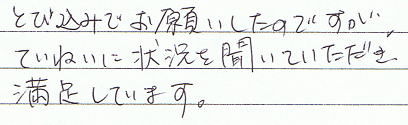 とび込みでお願いしたのですが、
ていねいに状況を聞いていただき
満足しています。